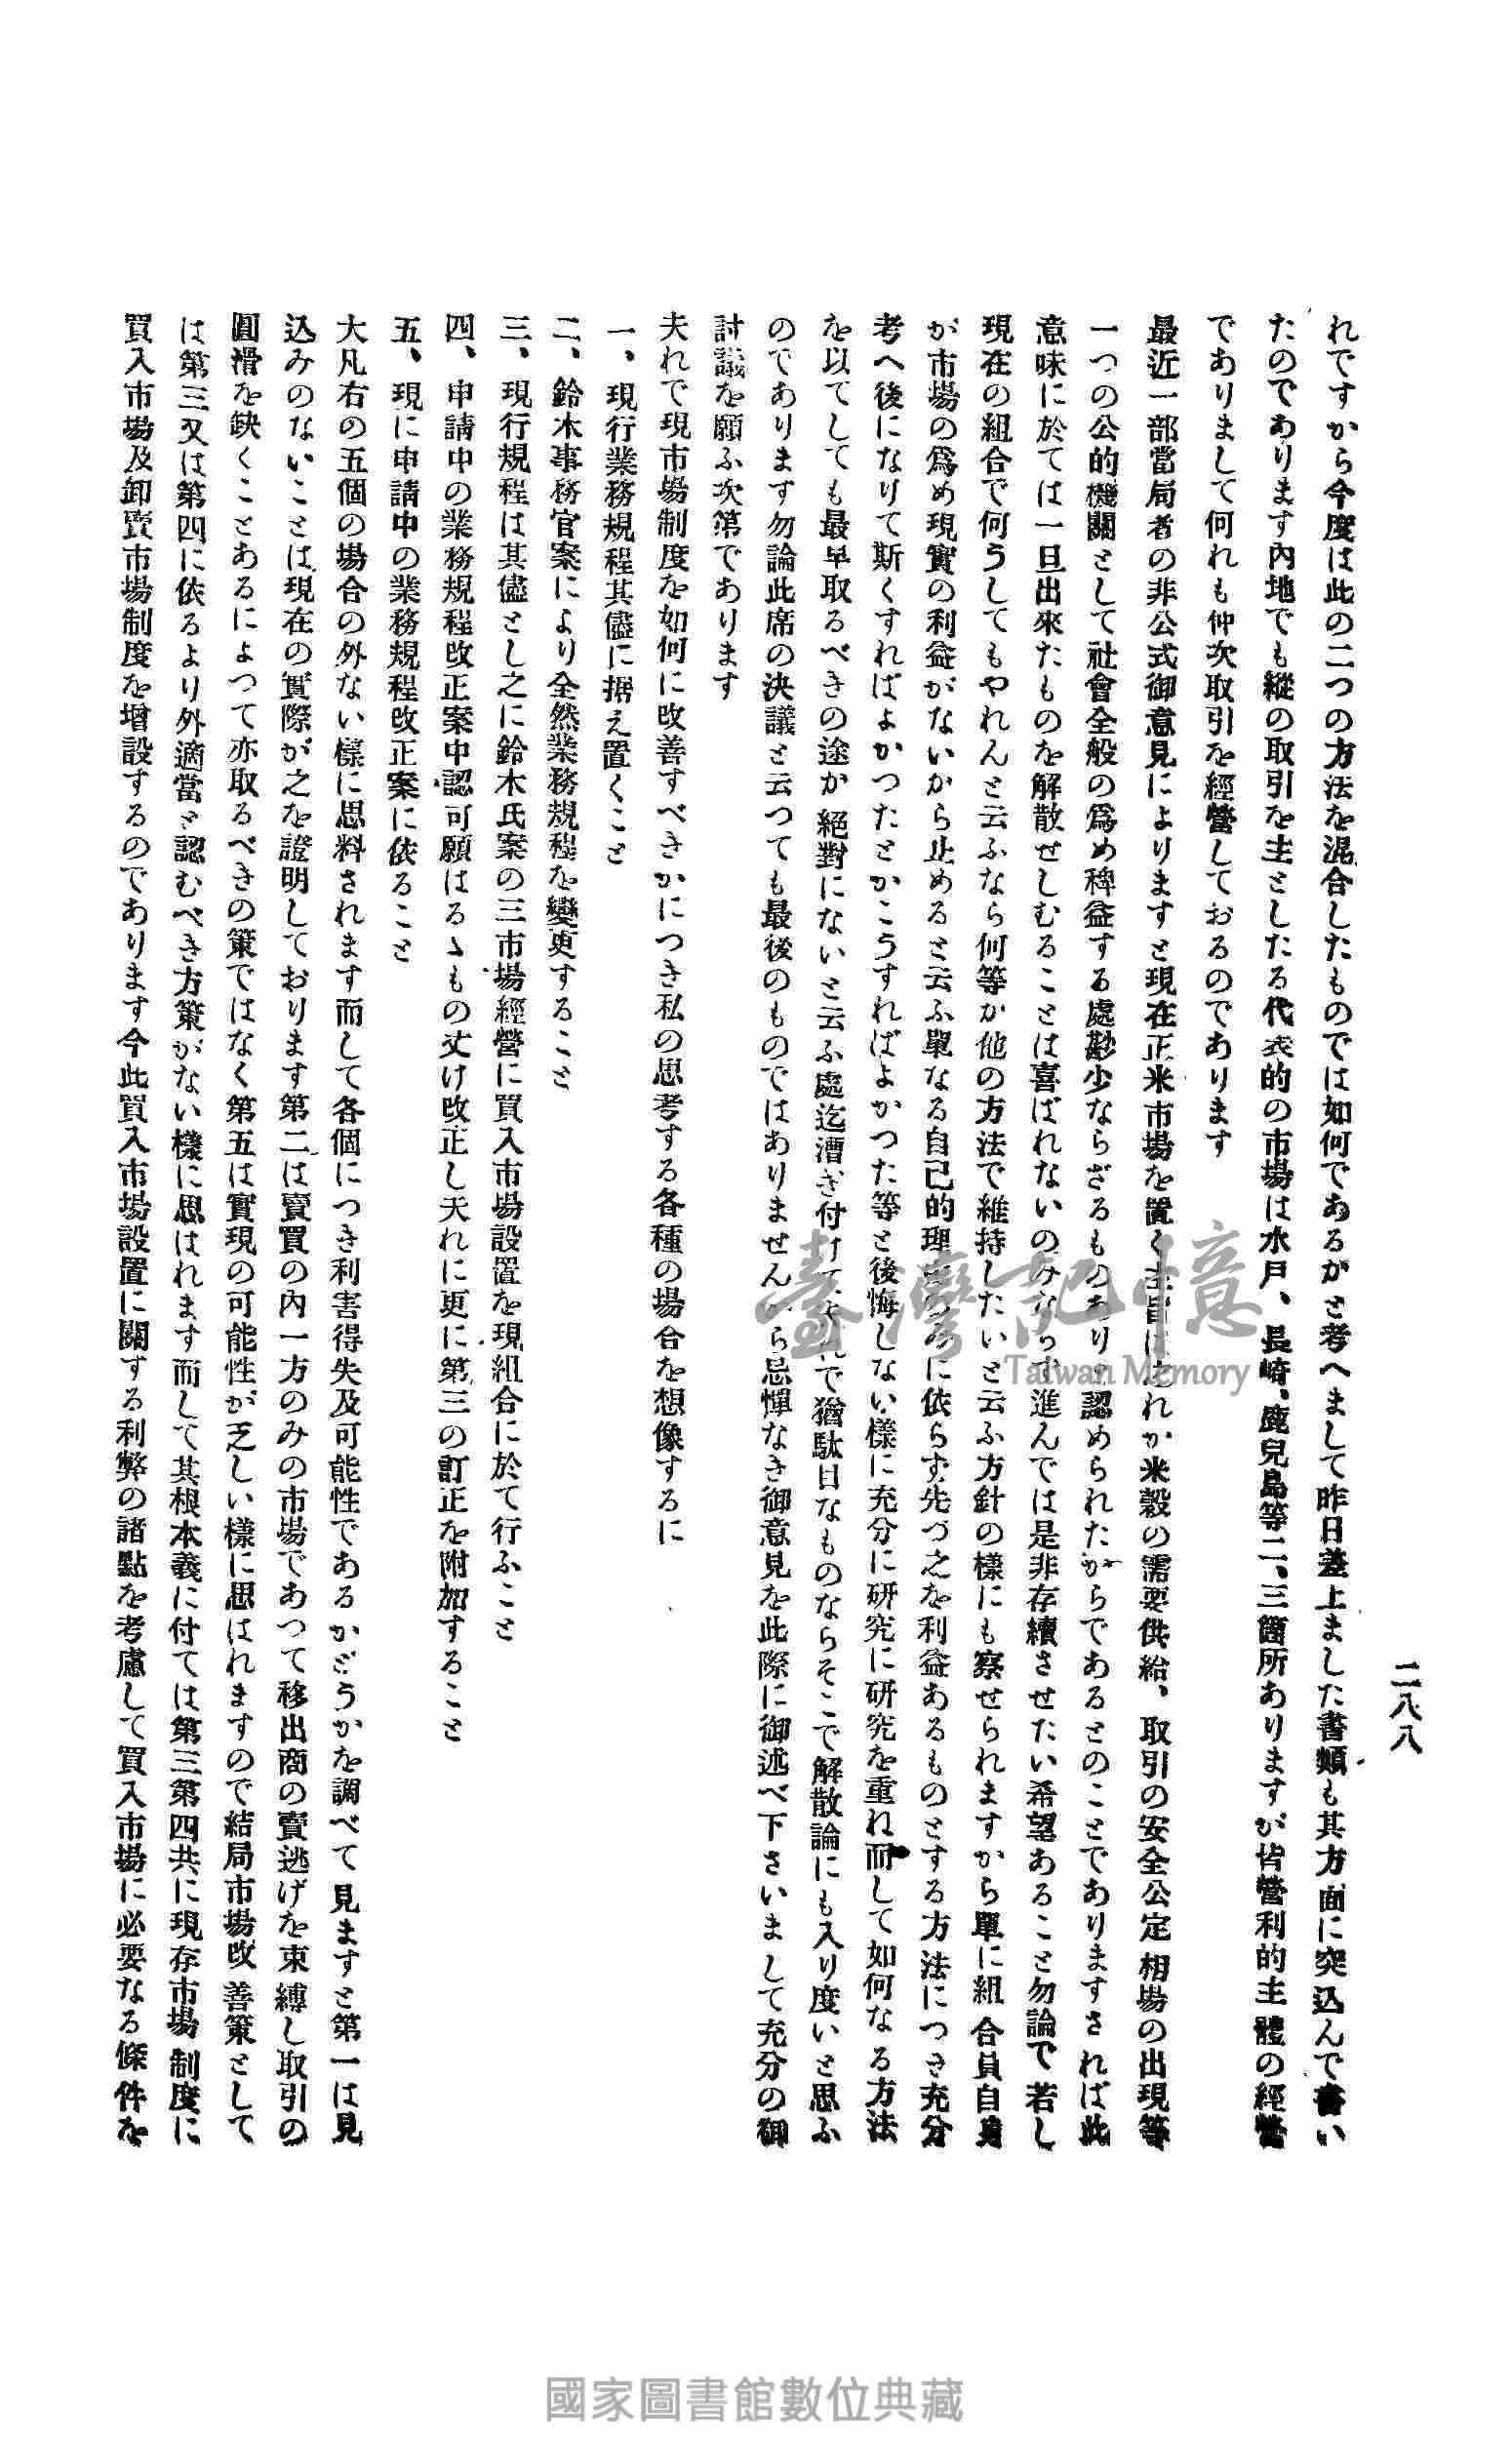 二八八
れですから今度は此の二つの方法を混合したものでは如何であるかと考へまして昨日差上ました書類も其方面に突込んで書い
たのであります內地でも縱の取引を主としたる代表的の市場は水戶、長崎、鹿兒島等二、三箇所ありますが皆營利的主體の經營
でありまして何れも仲次取引を經營しておるのであります
最近一部當局者の非公式御意見によりますと現在正米市場を置く主旨はあれか米穀の需要供給、取引の安全公定相場の出現等
一つの公的機關として社會全般の爲め稗益する處尠少ならざるものありと認められたからであるとのことでありますされば此
意味に於ては一旦出來たものを解散せしむることは喜ばれないのみならず進んでは是非存續させたい希望あること勿論で若し
現在の組合で何うしてもやれんと云ふなら何等か他の方法で維持したいと云ふ方針の樣にも察せられますから單に組合員自身
が市場の爲め現實の利益がないから止めると云ふ單なる自己的理由のみに依らず先づ之を利益あるものとする方法につき充分
考へ後になりて斯くすればよかつたとかこうすればよかつた等と後悔しない樣に充分に研究に研究を重ね而して如何なる方法
を以てしても最早取るべきの途か絕對にないと云ふ處迄漕ぎ付けてそれで猶駄目なものならそこで解散論にも入り度いと思ふ
のであります勿論此席の決議と云つても最後のものではありませんから忌憚なき御意見を此際に御述べ下さいまして充分の御
討議を願ふ次第であります
夫れで現市場制度を如何に改善すべきかにつき私の思考する各種の場合を想像するに
一、現行業務規程其儘に据え置くこと
二、鈴木事務官案により全然業務規程を變更すること
三、現行規程は其儘とし之に鈴木氏案の三市場經營に買入市場設置を現組合に於て行ふこと
四、申請中の業務規程改正案中認可願はるゝもの丈け改正し夫れに更に第三の訂正を附加すること
五、現に申請中の業務規程改正案に依ること
大凡右の五個の場合の外ない樣に思料されます而して各個につき利害得失及可能性であるかどうかを調べて見ますと第一は見
込みのないことは現在の實際が之を證明しております第二は賣買の內一方のみの市場であつて移出商の賣逃げを束縛し取引の
圓滑を缺くことあるによつて亦取るべきの策ではなく第五は實現の可能性が乏しい樣に思はれますので結局市場改善策として
は第三又は第四に依るより外適當と認むべき方策がない樣に思はれます而して其根本義に付ては第三第四共に現存市場制度に
買入市場及卸賣市場制度を增設するのであります今此買入市場設置に關する利弊の諸點を考慮して買入市場に必要なる條件を
臺灣記憶
Taiwan Memory
國家圖書館數位典藏